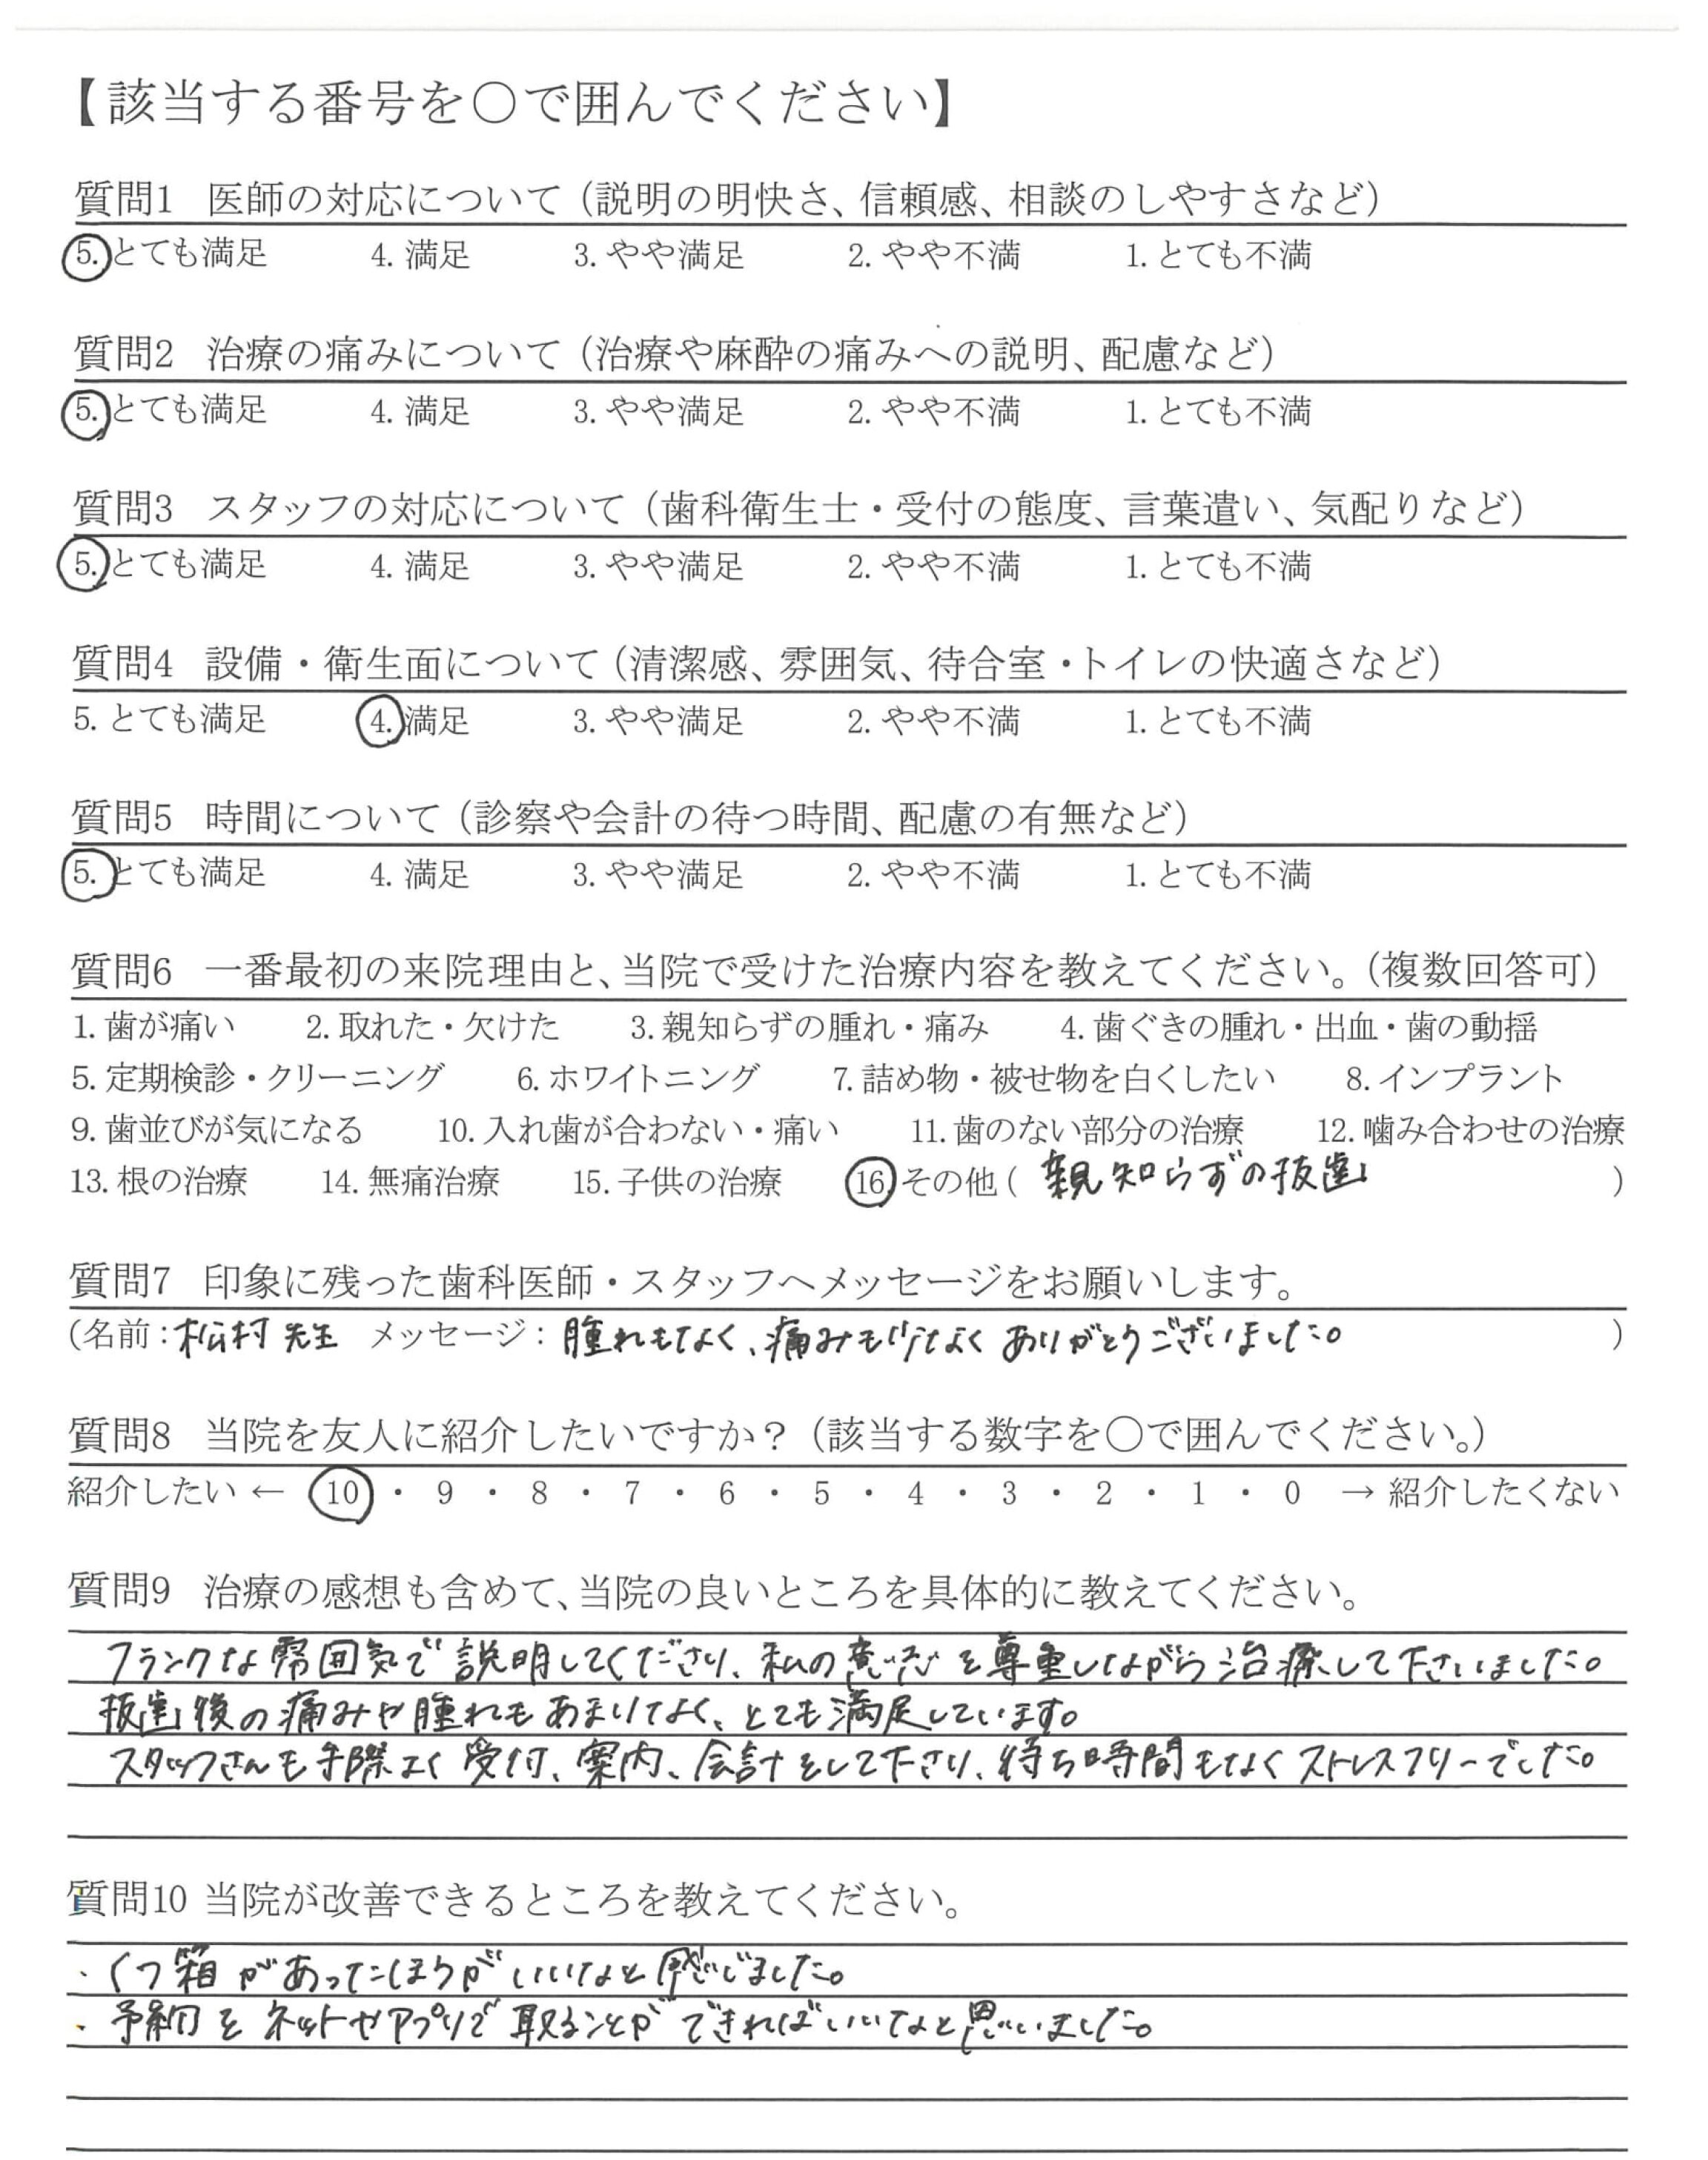 【該当する番号を〇で囲んでください】
質問1 医師の対応について（説明の明快さ、信頼感、相談のしやすさなど）
5. とても満足 4. 満足 3. やや満足 2. やや不満 1. とても不満
質問2 治療の痛みについて（治療や麻酔の痛みへの説明、配慮など）
5. とても満足 4. 満足 3. やや満足 2. やや不満 1. とても不満
質問3 スタッフの対応について（歯科衛生士・受付の態度、言葉遣い、気配りなど）
5. とても満足 4. 満足 3. やや満足 2. やや不満 1. とても不満
質問4 設備・衛生面について（清潔感、雰囲気、待合室・トイレの快適さなど）
5. とても満足 4. 満足 3. やや満足 2. やや不満 1. とても不満
質問5 時間について（診察や会計の待つ時間、配慮の有無など）
5. とても満足 4. 満足 3. やや満足 2. やや不満 1. とても不満
質問6 一番最初の来院理由と、当院で受けた治療内容を教えてください。（複数回答可）
1. 歯が痛い 2. 取れた・欠けた 3. 親知らずの腫れ・痛み 4. 歯ぐきの腫れ・出血・歯の動揺
5. 定期検診・クリーニング 6. ホワイトニング 7. 詰め物・被せ物を白くしたい 8. インプラント
9. 歯並びが気になる 10. 入れ歯が合わない・痛い 11. 歯のない部分の治療 12. 噛み合わせの治療
13. 根の治療 14. 無痛治療 15. 子供の治療 16 その他（ 親知らずの抜歯 ）
質問7 印象に残った歯科医師・スタッフへメッセージをお願いします。
（名前：松村先生 メッセージ：腫れもなく、痛みもなく ありがとうございました。 ）
質問8 当院を友人に紹介したいですか？（該当する数字を〇で囲んでください。）
紹介したい ← 10 ・ 9 ・ 8 ・ 7 ・ 6 ・ 5 ・ 4 ・ 3 ・ 2 ・ 1 ・ 0 → 紹介したくない
質問9 治療の感想も含めて、当院の良いところを具体的に教えてください。
フランクな雰囲気で説明してくださり、私の意志を尊重しながら治療して下さいました。
抜歯後の痛みや腫れもあまりなく、とても満足しています。
スタッフさんも手際よく受付、案内、会計をして下さり、待ち時間もなくストレスフリーでした。
質問10 当院が改善できるところを教えてください。
・くつ箱があったほうがいいなと感じました。
・予約をネットやアプリで取ることができればいいなと思いました。